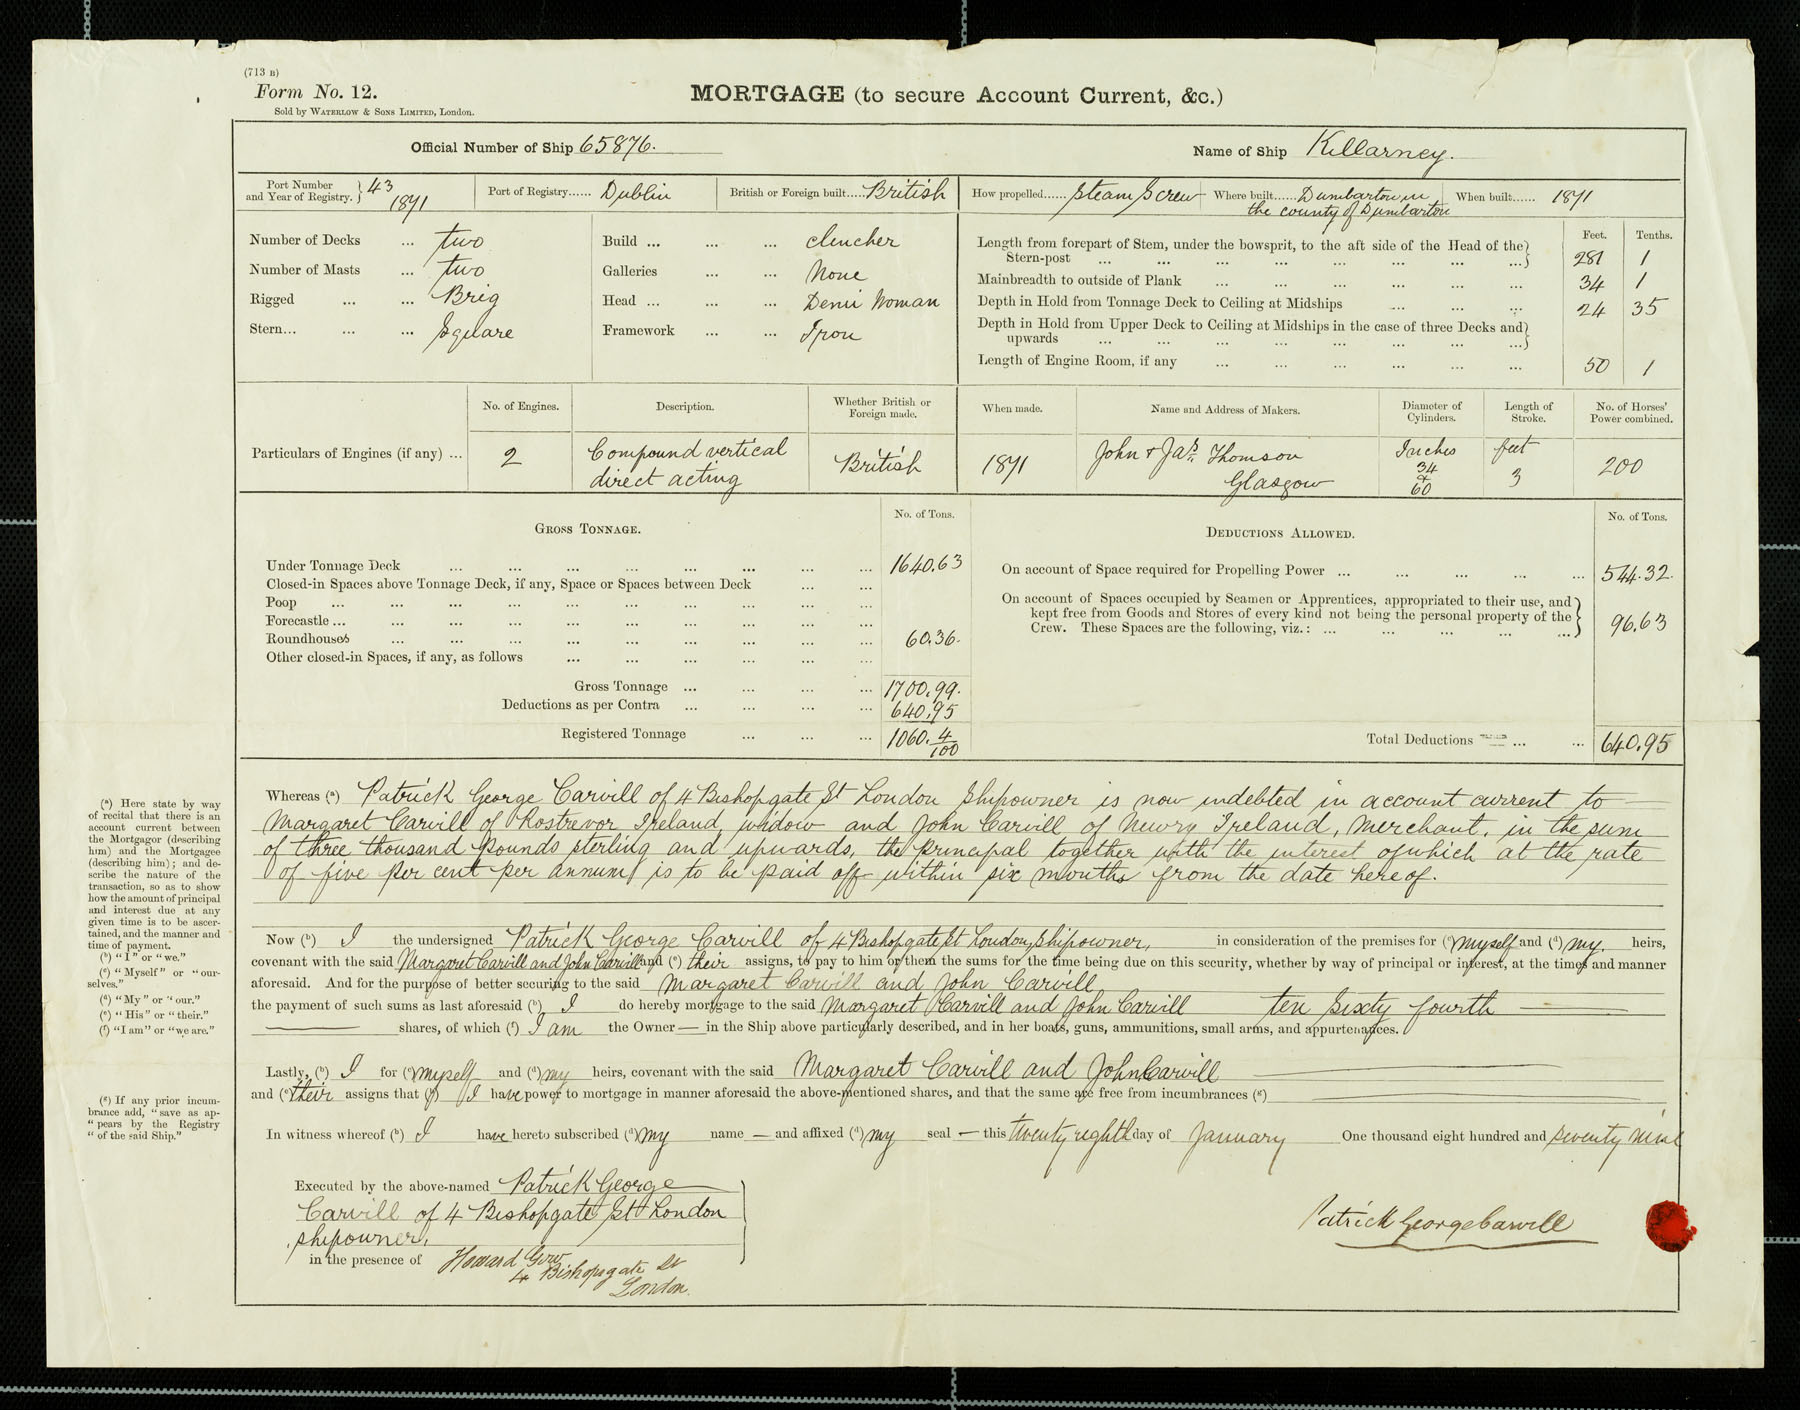 (713 B)
Form No. 12.
Sold by WATERLOW & SONS LIMITED, London.
MORTGAGE (to secure Account Current, &c.)
Official Number of Ship 65876.
Name of Ship Killarney.
Port Number and Year of Registry. } 43 1871
Port of Registry...... Dublin
British or Foreign built.... British
How propelled...... Steam Screw
Where built...... Dumbarton in the county of Dumbarton
When built...... 1871
Number of Decks ... two
Number of Masts ... two
Rigged ... ... Brig
Stern... ... ... Square
Build ... ... ... clencher
Galleries ... ... None
Head ... ... ... Demi Woman
Framework ... ... Iron
Feet. Tenths.
Length from forepart of Stem, under the bowsprit, to the aft side of the Head of the
Stern-post ... ... ... ... ... ... ... ...} 281 1
Mainbreadth to outside of Plank ... ... ... ... ... ... 34 1
Depth in Hold from Tonnage Deck to Ceiling at Midships ... ... ... 24 35
Depth in Hold from Upper Deck to Ceiling at Midships in the case of three Decks and
upwards ... ... ... ... ... ... ... ...}
Length of Engine Room, if any ... ... ... ... ... ... 50 1
Particulars of Engines (if any) ...
No. of Engines.
2
Description.
Compound vertical
direct acting
Whether British or
Foreign made.
British
When made.
1871
Name and Address of Makers.
John & Jas. Thomson
Glasgow
Diameter of
Cylinders.
Inches
34
&
60
Length of
Stroke.
feet
3
No. of Horses'
Power combined.
200
GROSS TONNAGE.
No. of Tons.
Under Tonnage Deck ... ... ... ... ... ... ... ... 1640.63
Closed-in Spaces above Tonnage Deck, if any, Space or Spaces between Deck ... ...
Poop ... ... ... ... ... ... ... ... ... ...
Forecastle ... ... ... ... ... ... ... ... ... ...
Roundhouses ... ... ... ... ... ... ... ... ... 60.36.
Other closed-in Spaces, if any, as follows ... ... ... ... ... ...
Gross Tonnage ... ... ... ... 1700.99.
Deductions as per Contra ... ... ... ... 640.95
Registered Tonnage ... ... ... 1060. 4/100
DEDUCTIONS ALLOWED.
No. of Tons.
On account of Space required for Propelling Power ... ... ... ... ... 544.32.
On account of Spaces occupied by Seamen or Apprentices, appropriated to their use, and
kept free from Goods and Stores of every kind not being the personal property of the
Crew. These Spaces are the following, viz.: ... ... ... ... ...} 96.63
Total Deductions ... ... 640.95
Whereas (a) Patrick George Carvill of 4 Bishopgate St London Shipowner is now indebted in account current to
Margaret Carvill of Rostrevor Ireland, widow and John Carvill of Newry Ireland, Merchant, in the sum
of three thousand pounds sterling and upwards, the principal together with the interest of which at the rate
of five per cent per annum is to be paid off within six months from the date hereof.
Now (b) I the undersigned Patrick George Carvill of 4 Bishopgate St London, Shipowner, in consideration of the premises for (c) myself and (d) my. heirs,
covenant with the said Margaret Carvill and John Carvill and (e) their assigns, to pay to him or them the sums for the time being due on this security, whether by way of principal or interest, at the times and manner
aforesaid. And for the purpose of better securing to the said Margaret Carvill and John Carvill
the payment of such sums as last aforesaid (b) I do hereby mortgage to the said Margaret Carvill and John Carvill ten Sixty fourth
shares, of which (f) I am the Owner — in the Ship above particularly described, and in her boats, guns, ammunitions, small arms, and appurtenances.
Lastly, (b) I for (c) myself and (d) my heirs, covenant with the said Margaret Carvill and John Carvill
and (e) their assigns that (b) I have power to mortgage in manner aforesaid the above-mentioned shares, and that the same are free from incumbrances (g)
In witness whereof (b) I have hereto subscribed (d) my name — and affixed (d) my seal — this twenty eighth day of January One thousand eight hundred and seventy nine
Executed by the above-named Patrick George
Carvill of 4 Bishopgate St London
shipowner,
in the presence of Howard Gow
4 Bishopsgate St
London.
Patrick George Carvill
(a) Here state by way
of recital that there is an
account current between
the Mortgagor (describing
him) and the Mortgagee
(describing him); and de-
scribe the nature of the
transaction, so as to show
how the amount of principal
and interest due at any
given time is to be ascer-
tained, and the manner and
time of payment.
(b) “I” or “we.”
(c) “Myself” or “our-
selves.”
(d) “My” or “our.”
(e) “His” or “their.”
(f) “I am” or “we are.”
(g) If any prior incum-
brance add, “save as ap-
“pears by the Registry
“of the said Ship.”